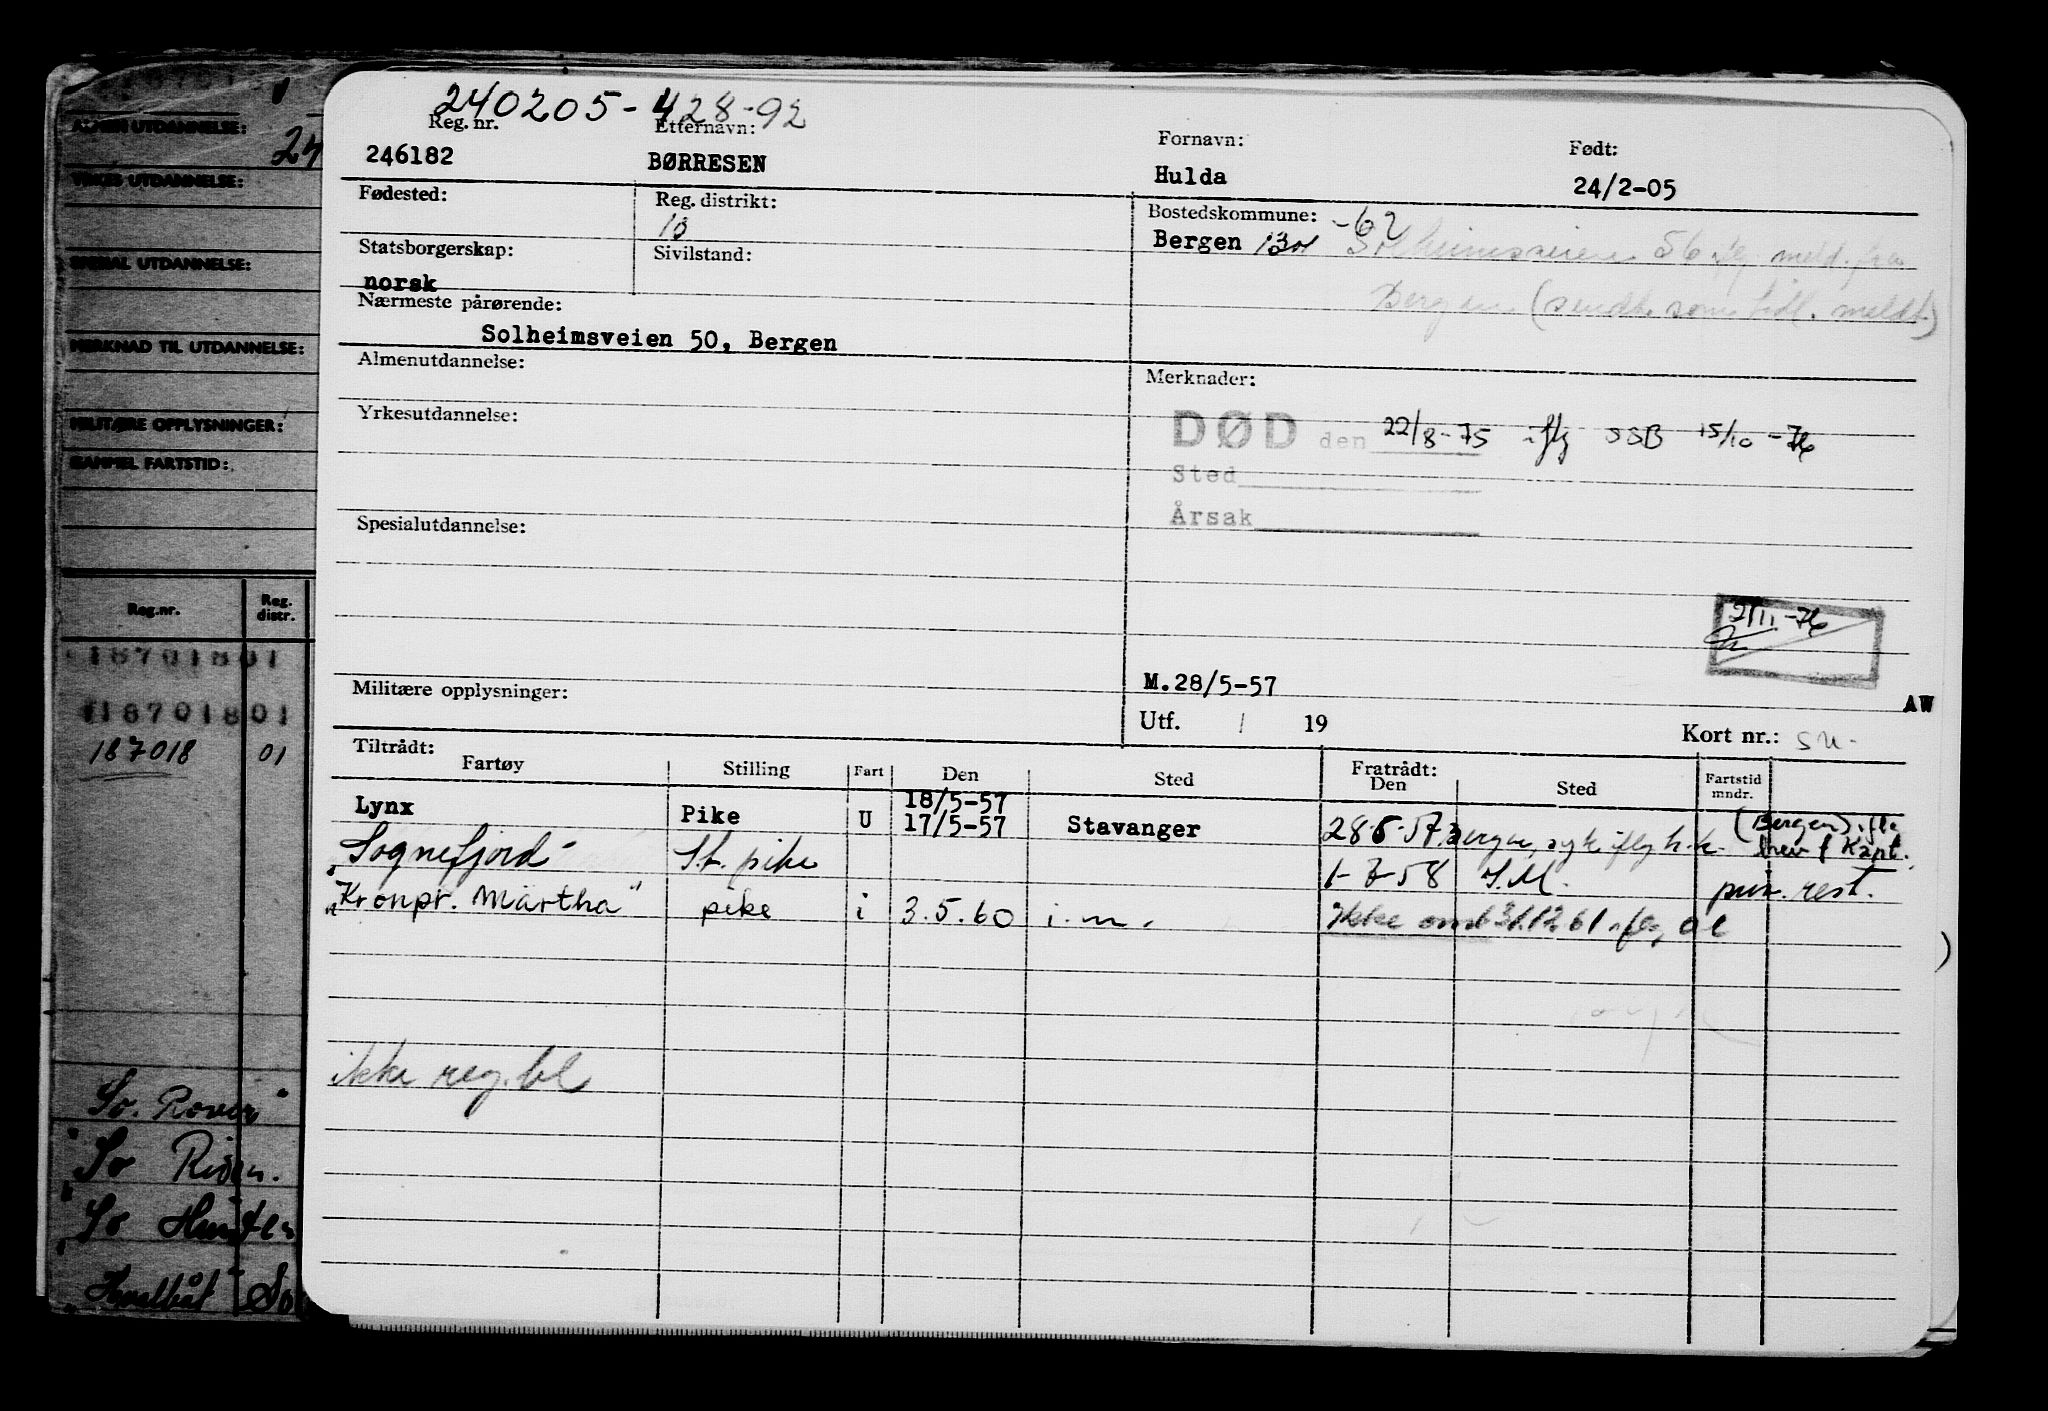 240205-428-92
Reg. nr. Etternavn: Fornavn: Født:
246182 BØRRESEN Hulda 24/2-05
Fødested: Reg. distrikt: Bostedskommune: -62
13 Bergen 1301 56 iflg meld. fra
Statsborgerskap: Sivilstand:
norsk Bergen (sendt som tidl. meldt)
Nærmeste pårørende:
Solheimsveien 50, Bergen
Almenutdannelse: Merknader:
Yrkesutdannelse: DØD den 22/8-75 iflg SSB 15/10-76
Sted
Årsak
Spesialutdannelse:
2/11-76
Militære opplysninger: M.28/5-57
AW
Utf. / 19 Kort nr.:
Tiltrådt: Fratrådt:
Fartøy Stilling Fart Den Sted Den Sted Fartstid mndr.
18/5-57
Lynx Pike U 17/5-57 Stavanger 28.5.57 Bergen, syk iflg (Bergen) iflg
brev f Kapt.
"Sognefjord" St. pike 1-7-58 I.M. priv. rest.
"Kronpr. Märtha" pike i 3.5.60 i.m. Ikke omb 31.12.61 iflg
ikke reg. bl
ALMEN UTDANNELSE:
24
YRKES UTDANNELSE:
SPESIAL UTDANNELSE:
MERKNAD TIL UTDANNELSE:
MILITÆRE OPPLYSNINGER:
GAMMEL FARTSTID:
Reg.nr. Reg. distr.
18701801
18701801
187018 01